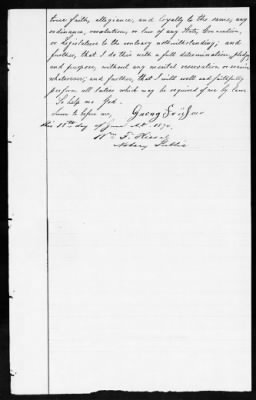 true faith, allegiance, and loyalty to the same, any
ordinance, resolution, or law of any State, Convention,
or Legislature to the contrary notwithstanding; and
further, that I do this with a full determination, pledge,
and purpose, without any mental reservation or evasion
whatsoever; and further, that I will well and faithfully
perform all duties which may be required of me by law.
So help me God.
Sworn to before me,
this 18th day of June A.D. 1870.
Wm F.
Notary Public